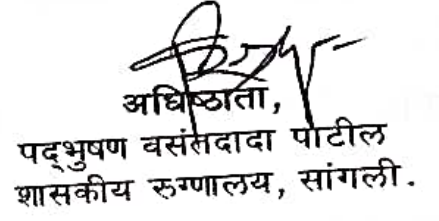 अधिष्ठाता,
पद्भुषण वसंतदादा पाटील
शासकीय रुग्णालय, सांगली.